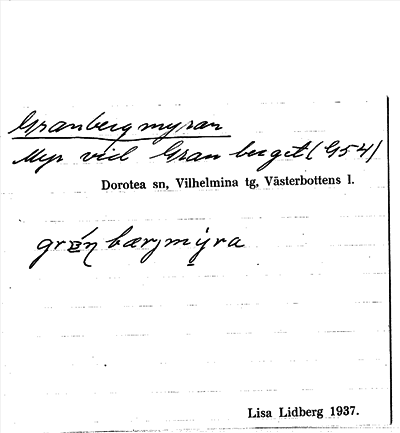 Granbergmyran
Myr vid Granberget (G54)
Dorotea sn, Vilhelmina tg, Västerbottens l.
grɶ́ŋbærjmyra
Lisa Lidberg 1937.